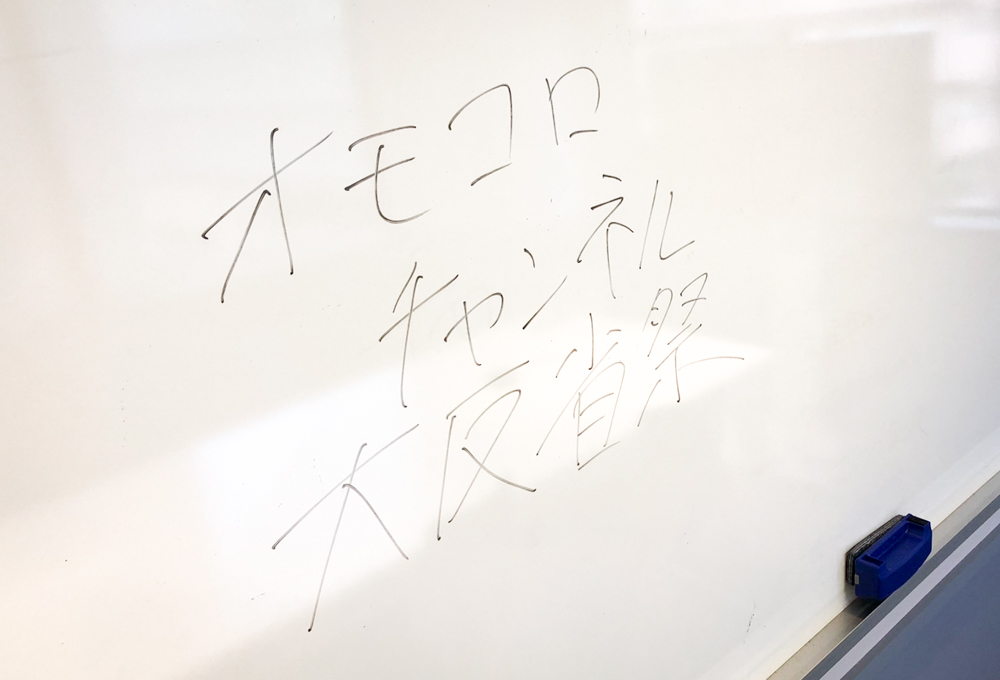 オモコロ
チャンネル
大反省祭